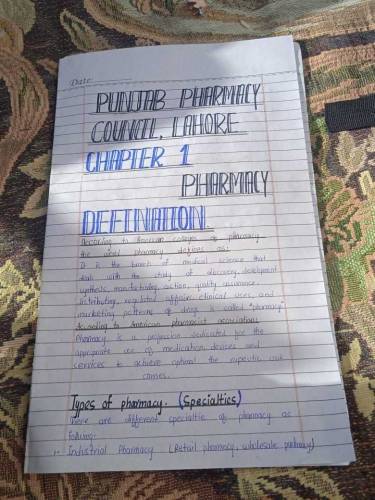 Date:
PUNJAB PHARMACY
COUNCIL, LAHORE
CHAPTER 1
PHARMACY
DEFINATION
According to American colleges of pharmacy
the word pharmacy defines as:
It is the branch of medical science that
deals with the study of discovery, development
synthesis, manufacturing, action, quality assurance
distributing, regulatory affairs, clinical uses, and
marketing patterns of drugs is called "pharmacy"
According to American pharmacist associations
Pharmacy is a profession dedicated for the
appropriate use of medication, devices and
services to achieve optimal the rapeutic out
comes.
Types of pharmacy. (Specialties)
There are different specialtie of pharmacy as
follows:
Industrial Pharmacy (Retail pharmacy, wholesale pharmacy)